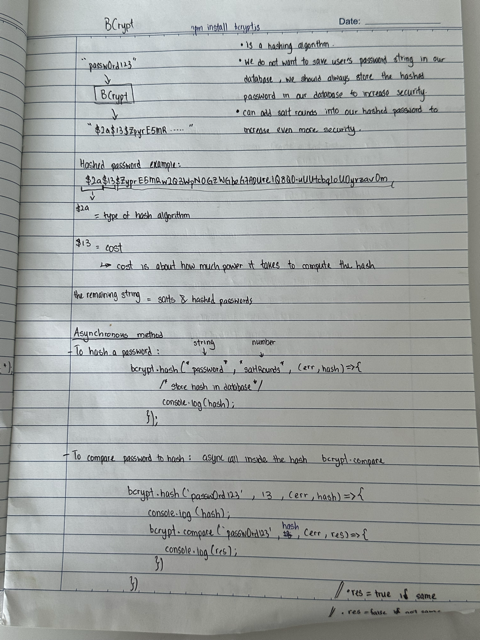 BCrypt
npm install bcryptjs
Date:
• is a hashing algorithm
• we do not want to save user's password string in our
database, we should always store the hashed
password in our database to increase security
• can add salt rounds into our hashed password to
increase even more security.
"passw0rd123"
BCrypt
"$2a$13$ZpyrE5mR ....."
Hashed password example:
$2a
= type of hash algorithm
$13 = cost
↳ cost is about how much power it takes to compute the hash
the remaining string = salts & hashed passwords
Asynchronous method
- To hash a password:
string
number
bcrypt.hash("password", "saltRounds", (err, hash) => {
/* store hash in database */
console.log(hash);
});
- To compare password to hash: async call inside the hash bcrypt.compare
bcrypt.hash('passw0rd123', 13, (err, hash) => {
console.log(hash);
bcrypt.compare('passw0rd123', hash, (err, res) => {
console.log(res);
})
})
// • res = true if same
// • res = false if not same